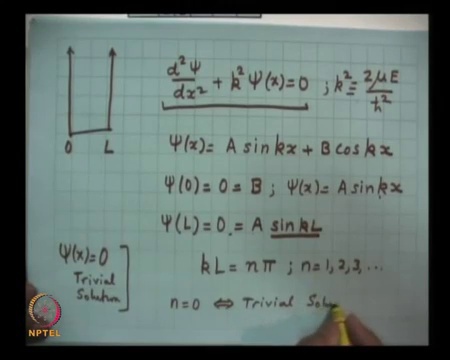 d²Ψ/dx² + k²Ψ(x) = 0 ; k² = 2μE/ħ²
0 L
Ψ(x) = A sin kx + B cos kx
Ψ(0) = 0 = B ; Ψ(x) = A sin kx
Ψ(L) = 0 = A sin kL
Ψ(x) = 0
Trivial
Solution
kL = nπ ; n = 1, 2, 3, ...
n = 0 ⇔ Trivial Solu
NPTEL